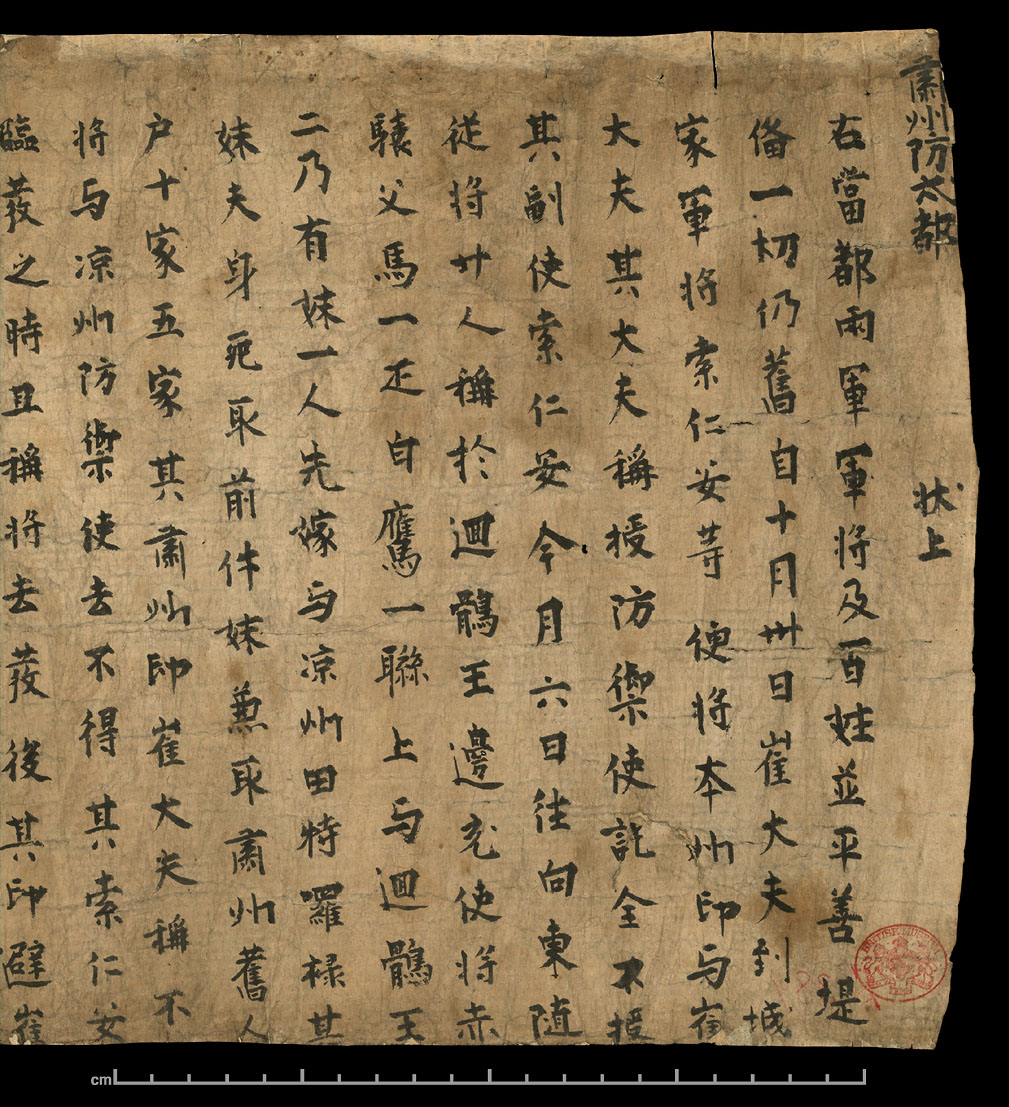 肅州防戍都　狀上
右當都兩軍軍將及百姓並平善堤
俻一切仍舊自十月卅日崔大夫到城
家軍將索仁安等便將本州印与崔
大夫其大夫稱授防禦使訖全不授
其副使索仁安今月六日往向東隨
從將廿人稱於迴鶻王邊充使將赤
父馬一疋白鷹一聯上与迴鶻王
二乃有妹一人先嫁与凉州田特囉禄其
妹夫身死取前件妹兼取肅州舊人
户十家五家其肅州印崔大夫稱不
將与凉州防禦使去不得其索仁安
臨發之時且稱將去發後其印避崔
BRITISH MUSEUM
cm